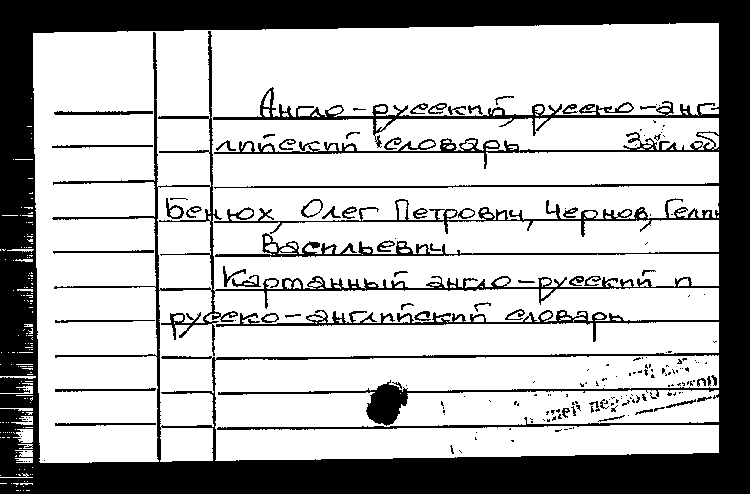 Англо-русский, русско-анг-
лийский словарь. Загл. об
Бенюх, Олег Петрович, Чернов, Гелий
Васильевич.
Карманный англо-русский и
русско-английский словарь
первого автор